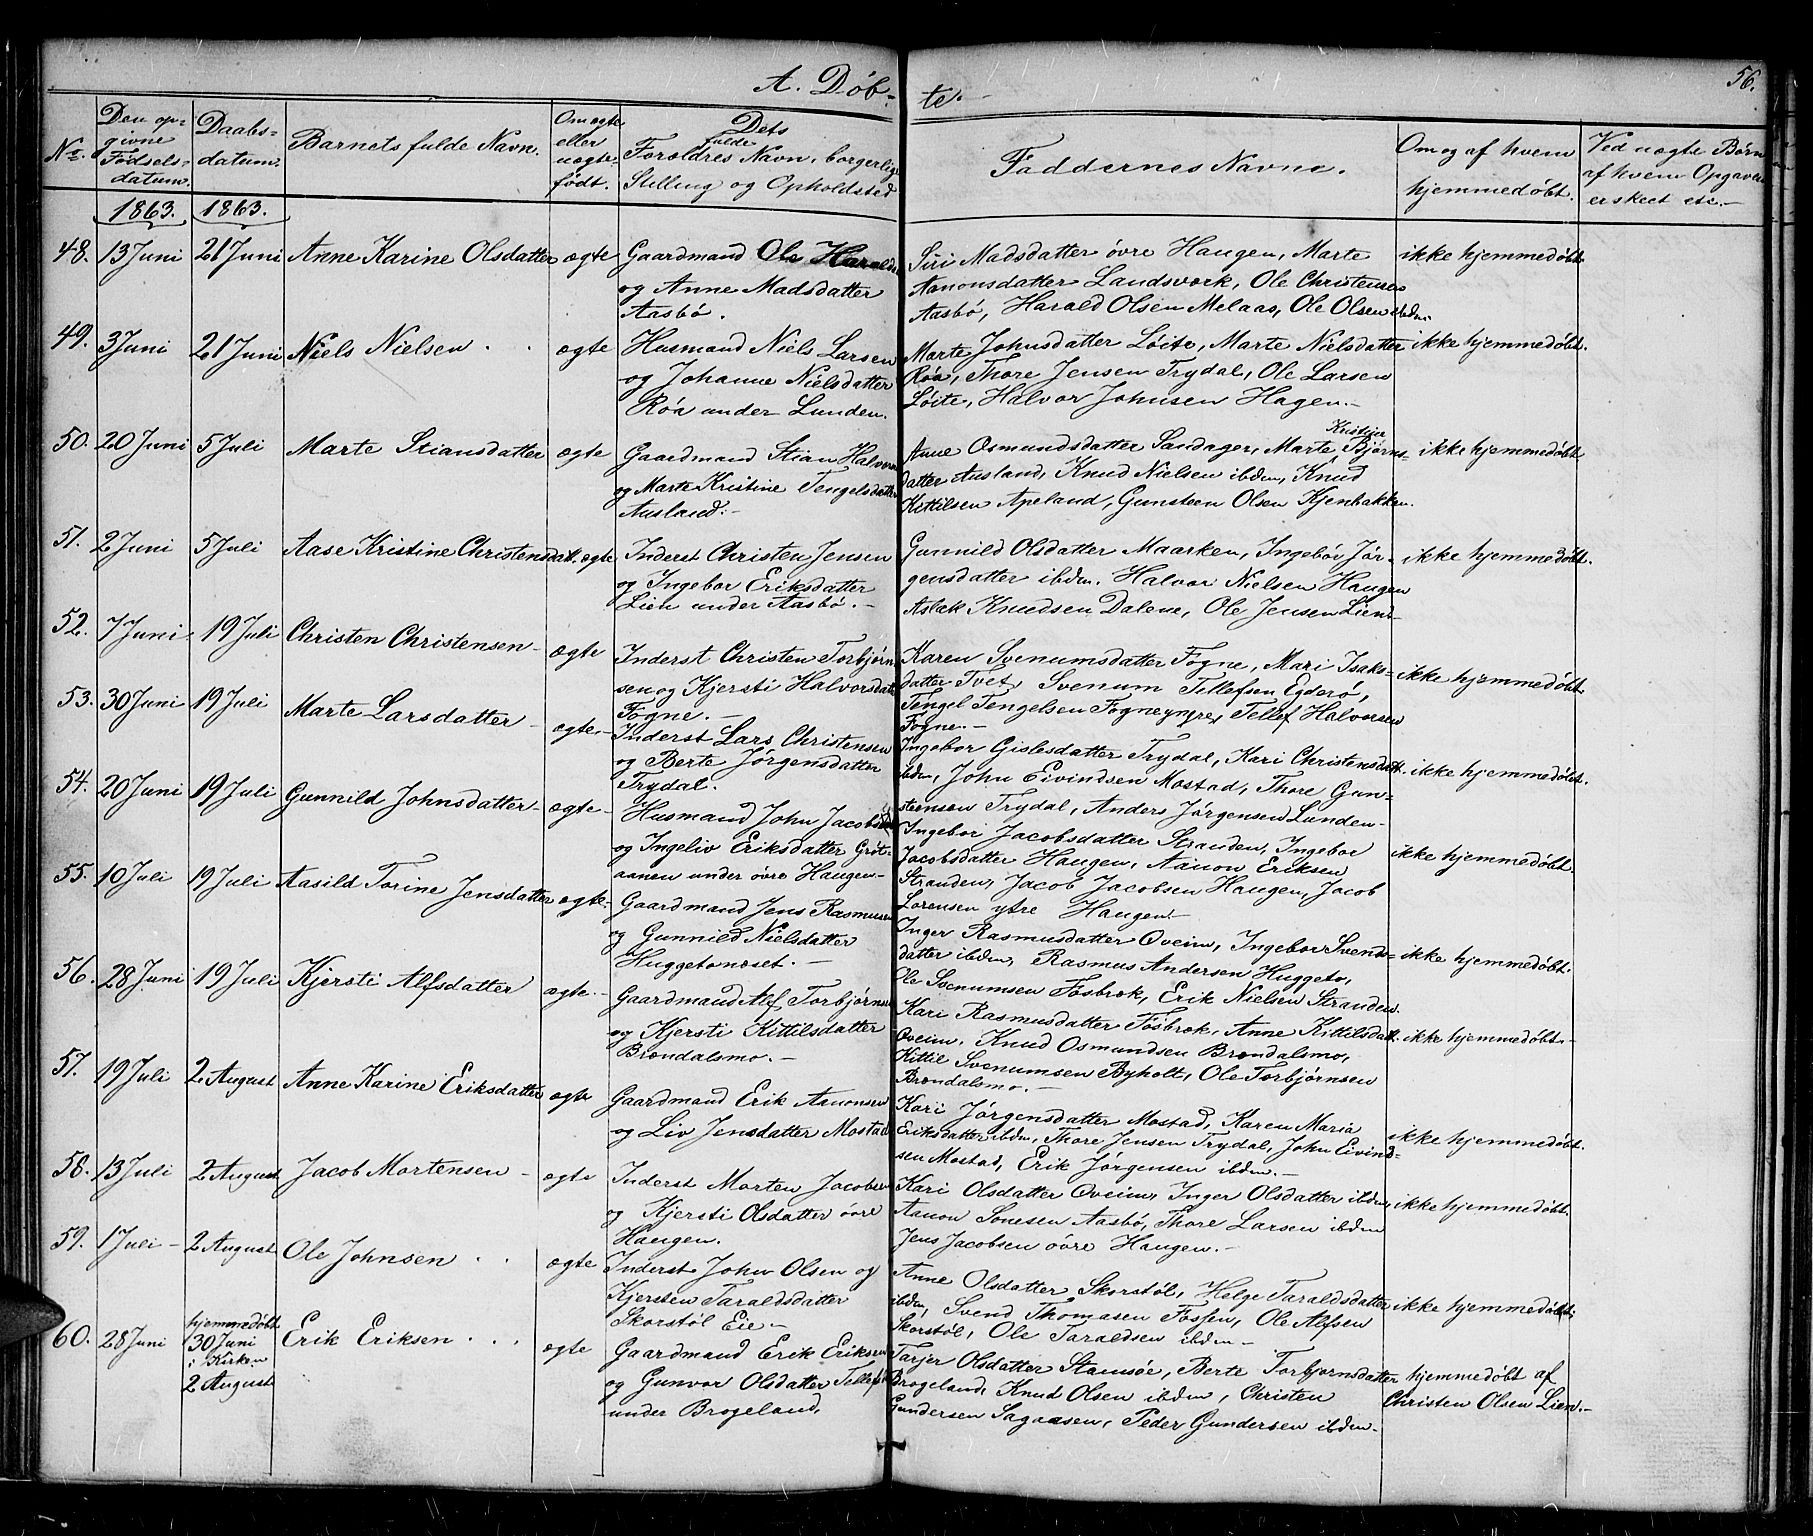 A. Döb-
te.
56.
No.
Den op-
givne
Födsels-
datum.
Daabs-
datum.
Barnets fulde Navn.
Om ægte
eller
uægte
födt.
Dets
fulde
Forældres Navn, borgerlige
Stilling og Opholdsted
Faddernes Navne.
Om og af hvem
hjemmedöbt.
Ved uægte Börn
af hvem Opgaven
er skeet etc.
1863. 1863.
48. 13 Juni 21 Juni Anne Karine Olsdatter ægte
Gaardmand Ole Haralds
og Anne Madsdatter
Aasbö.
Siri Madsdatter övre Haugen, Marte
Aanonsdatter Landsverk, Ole Christensen
Aasbö, Harald Olsen Melaas, Ole Olsen ibdm.
ikke hjemmedöbt
49. 3 Juni 21 Juni Niels Nielsen ægte
Husmand Niels Larsen
og Johanne Nielsdatter
Röa under Lunden.
Marte Johnsdatter Löite, Marte Nielsdatter
Röa, Thore Jensen Trydal, Ole Larsen
Löite, Halvor Johnsen Hagen.
ikke hjemmedöbt.
50. 20 Juni 5 Juli Marte Stiansdatter ægte
Gaardmand Stian Halvorsen
og Marte Kristine Tengelsdatter
Ausland.
Kristine
Anne Osmundsdatter Sandager, Marte Björns-
datter Ausland, Knud Nielsen ibdm, Knud
Kittilsen Apeland, Gunsteen Olsen Kjenbakken.
ikke hjemmedöbt
51. 2 Juni 5 Juli Aase Kristine Christensdatt. ægte
Inderst Christen Jensen
og Ingebor Eriksdatter
Lien under Aasbö.
Gunnild Olsdatter Maarken, Ingebör Jör-
gensdatter ibdm. Halvor Nielsen Haugen
Aslak Knudsen Dalene, Ole Jensen Lien
ikke hjemmedöbt.
52. 7 Juni 19 Juli Christen Christensen ægte
Inderst Christen Torbjörn
sen og Kjersti Halvorsdatt
Fogne.
Karen Svenumsdatter Fogne, Mari Isaks-
datter Tvet, Svenum Tellefsen Egderö,
Tengel Tengelsen Fogne yngre, Tellef Halvorsen
Fogne.
ikke hjemmedöbt
53. 30 Juni 19 Juli Marte Larsdatter ægte
Inderst Lars Christensen
og Berte Jörgensdatter
Trydal.
Ingebor Gislesdatter Trydal, Kari Christensdatt
ibdm, John Eivindsen Mostad, Thore Gun-
steensen Trydal, Anders Jörgensen Lunden
ikke hjemmedöbt.
54. 20 Juni 19 Juli Gunnild Johnsdatter ægte
Husmand John Jacobsen
og Ingeliv Eriksdatter Gröt-
aanen under övre Haugen
Ingebor Jacobsdatter Stranden, Ingebor
Jacobsdatter Haugen, Aanon Eriksen
Stranden, Jacob Jacobsen Haugen, Jacob
Lorensen ytre Haugen.
ikke hjemmedöbt.
55. 10 Juli 19 Juli Aasild Torine Jensdatter ægte
Gaardmand Jens Rasmusen
og Gunnild Nielsdatter
Huggetonæset.
Inger Rasmusdatter Oveim, Ingebor Svends-
datter ibdm, Rasmus Andersen Huggeto,
Ole Svenumsen Fosbrok, Erik Nielsen Stranden
ikke hjemmedöbt.
56. 28 Juni 19 Juli Kjersti Alfsdatter ægte
Gaardmand Alf Torbjörnsen
og Kjersti Kittilsdatter
Brændalsmo.
Kari Rasmusdatter Fösbrok, Anne Kittilsdatt
Oveim, Knud Osmundsen Brændalsmo,
Kittil Svenumsen Byholt, Ole Torbjörnsen
Brændalsmo.
ikke hjemmedöbt.
57. 19 Juli 2 August Anne Karine Eriksdatter ægte
Gaardmand Erik Aanonsen
og Liv Jensdatter Mostad
Kari Jörgensdatter Mostad, Karen Maria
Eriksdatter ibdm, Thore Jensen Trydal, John Eivind-
sen Mostad, Erik Jörgensen ibdm.
ikke hjemmedöbt.
58. 13 Juli 2 August Jacob Mortensen ægte
Inderst Morten Jacobsen
og Kjersti Olsdatter övre
Haugen.
Kari Olsdatter Oveim, Inger Olsdatter ibdm,
Aanon Sonesen Aasbö, Thore Larsen ibdm
Jens Jacobsen övre Haugen.
ikke hjemmedöbt.
59. 1 Juli 2 August Ole Johnsen ægte
Inderst John Olsen og
Kjersten Taraldsdatter
Skorstöl Eie
Anne Olsdatter Skorstöl, Helge Taraldsdatter
ibdm, Svend Thomasen Fossen, Ole Alfsen
Skorstöl, Ole Taraldsen ibdm
ikke hjemmedöbt
60. 28 Juni
hjemmedöbt
30 Juni
i Kirken
2 August
Erik Eriksen ægte
Gaardmand Erik Eriksen
og Gunvor Olsdatter
under Brogeland.
Tarjer Olsdatter Stamsöe, Berte Torbjornsdatter
Brogeland, Knud Olsen ibdm, Christen
Gundersen Sagaasen, Peder Gundersen ibdm.
hjemmedöbt af
Christen Olsen Lien.